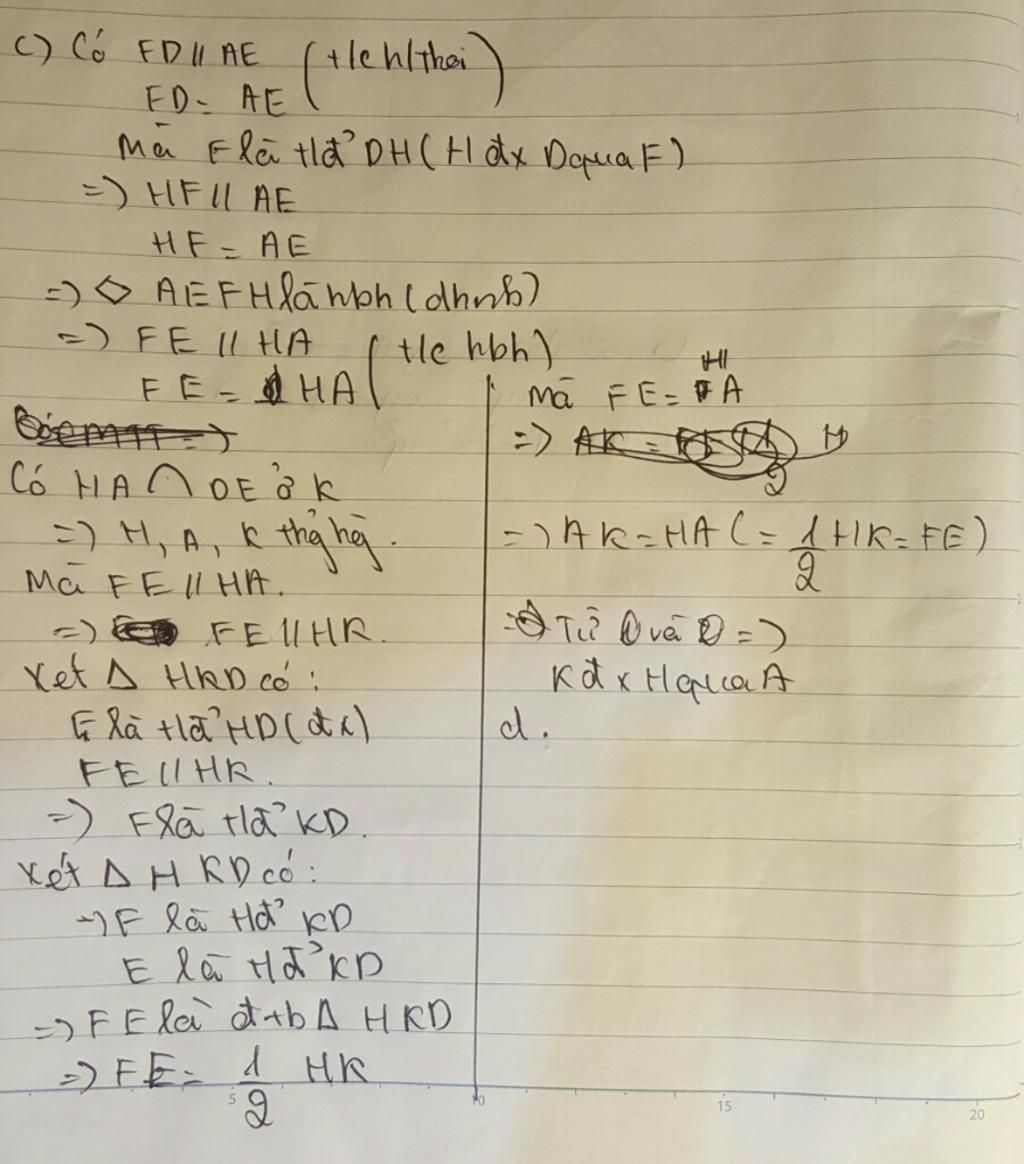 c) Có FD // AE (t/c h/thoi)
FD = AE
Mà F là tđ' DH (H đx D qua F)
=) HF // AE
HF = AE
=) ◇ AEFH là hbh (dhnb)
=) FE // HA (t/c hbh)
FE = HA
Có HA ∩ DE ở K
=) H, A, K thẳg hàg.
Mà FE // HA.
=) FE // HK.
Xét Δ HKD có:
F là tđ' HD (đx)
FE // HK.
=) F là tđ' KD.
Xét Δ HKD có:
=) F là tđ' KD
E là tđ' KD
=) FE là đtb Δ HKD
=) FE = 1/2 HK
Mà FE = HA
=)
=) AK = HA (= 1/2 HK = FE)
Từ ① và ② =)
K đx H qua A
d.
5 10 15 20